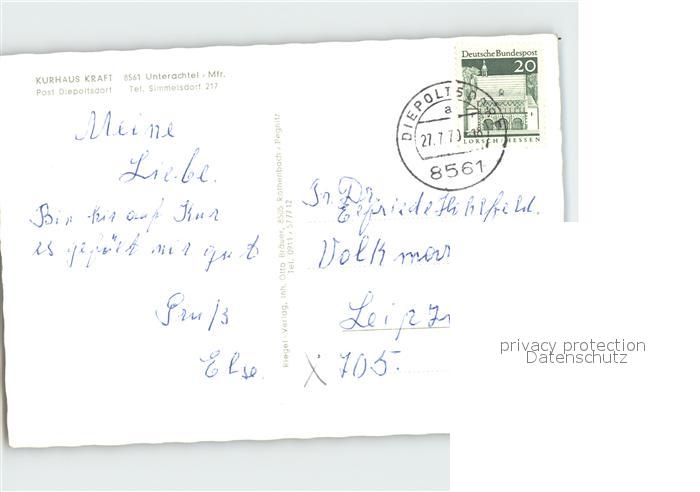 KURHAUS KRAFT 8561 Unterachtel - Mfr.
Post Diepoltsdorf Tel. Simmelsdorf 217
Deutsche Bundespost
20
LORSCH/HESSEN
DIEPOLTSDORF
a
27.7.70
8561
Meine
Liebe.
Bin hir auf Kur
es gefällt mir gut
Gruß
Else.
Riegel-Verlag, Inh. Otto Bräuer, 8505 Röthenbach / Pegnitz
Tel. 0911 - 577712
Fr. Dr.
Elfriede
Volkmar
Leipzi
705.
privacy protection
Datenschutz